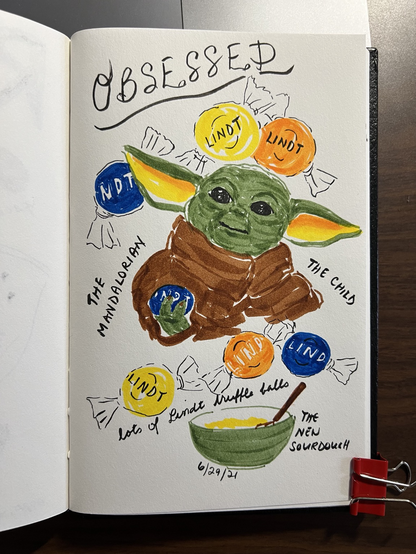 OBSESSED
LINDT
LINDT
NDT
THE
MANDALORIAN
THE CHILD
LINDT
INDT
LIND
LINDT
lots of Lindt truffle balls
THE
NEW
SOURDOUGH
6/29/21